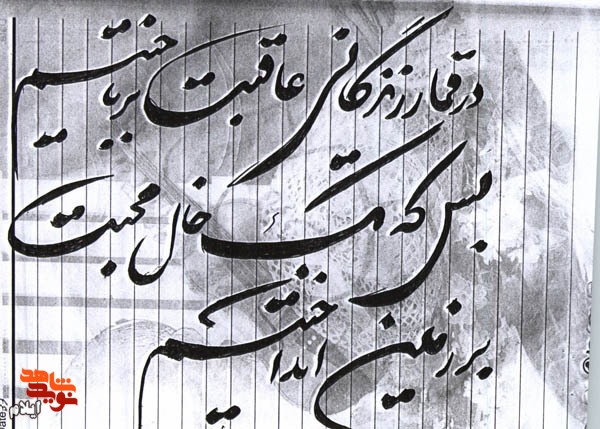 در قمار زندگانی عاقبت بر باختیم
بس که تک خال محبت
بر زمین انداختیم
نوید شاهد
ایلام